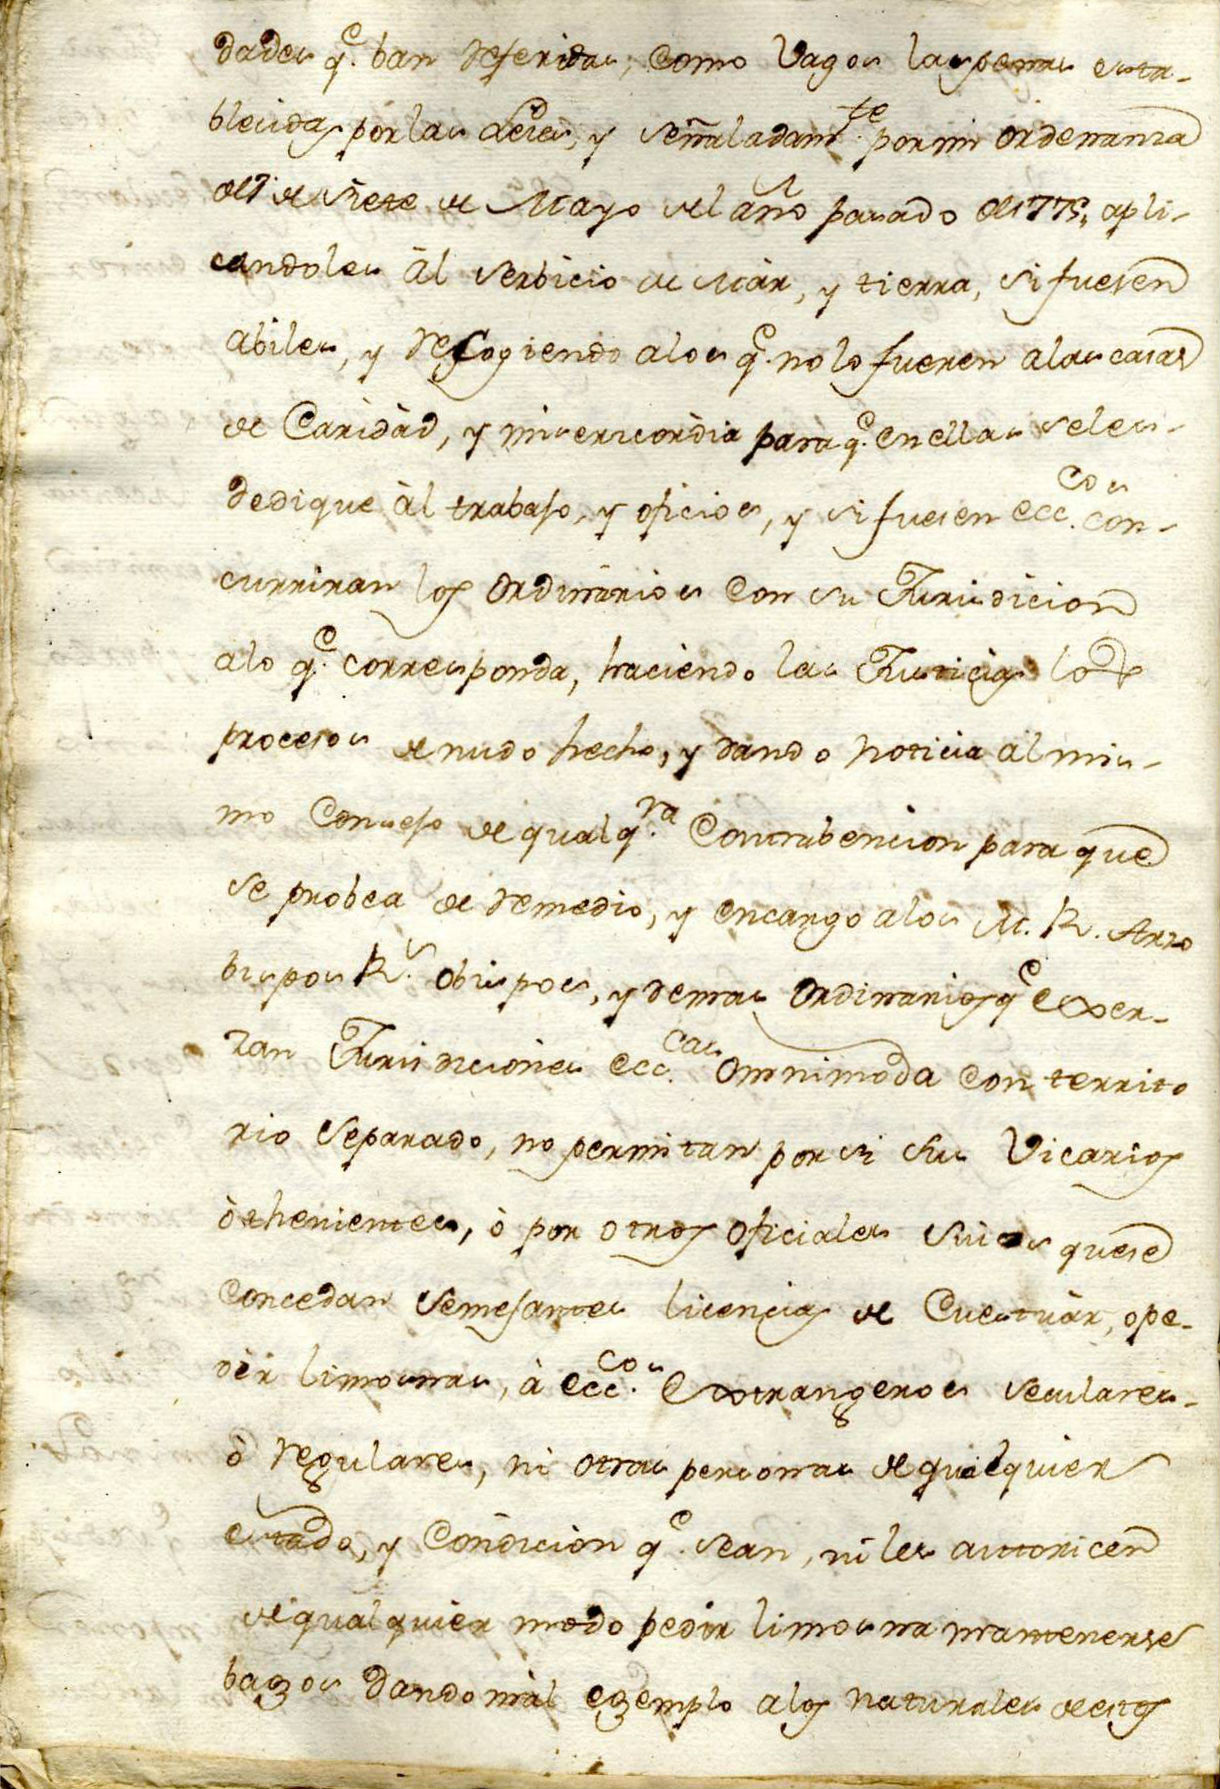 dades q.e ban referidas, como Vagos las penas esta-
blecidas por las Leies, y señaladam.te por mi ordenanza
de siete de Mayo del año pasado de 1775, apli-
candoles àl serbicio de Màr, y tierra, si fuesen
abiles, y recogiendo alos q.e no lo fueren alas casas
de Caridàd, y misericordia para q.e en ellas seles-
dedique àl trabajo, y oficios, y si fuesen ecc.cos con-
curriran los ordinarios con su Jurisdicion
alo q.e corresponda, haciendo las Justicias los
procesos de nudo hecho, y dando noticia al mis-
mo Consejo de qualq.ra Contrabencion para que
se probea de remedio, y encargo alos M. R. Arzo
bispos R.s obispos, y demas ordinarios q.e exer-
zan Jurisdiciones ecc.cas omnimoda con territo
rio separado, no permitan por si sus Vicarios
ò thenientes, ò por otros oficiales suios que se
concedan semejantes licencias de Cuestuàr, o pe-
dir limosnas, à ecc.cos Extrangeros seculares-
ò regulares, ni otras personas de qualquier
estado, y condicion q.e sean, ni les autoricen
de qualquièr modo pedir limosna mantenerse
bagos dando màl egemplo alos naturales de estos